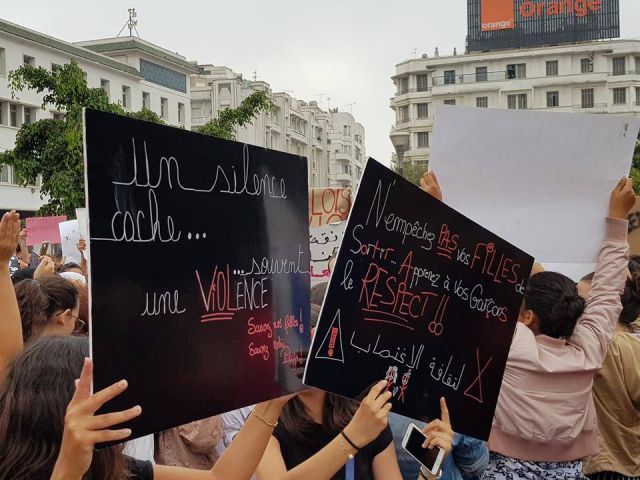 orange
orange
Un silence
cache...
...souvent
une VIOLENCE
Sauvez nos filles!
Sauvez notre
Pays
N'empêchez PAS vos FILLES de
Sortir... Apprenez à vos Garçons
le RESPECT!!
لثقافة الاغتصاب
LOIS